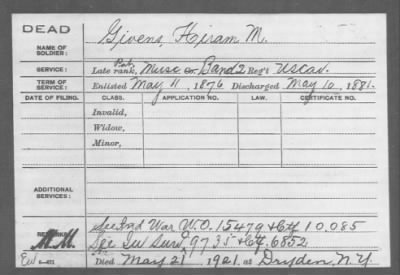 DEAD
NAME OF SOLDIER: Givens, Hiram M.
SERVICE: Late rank, Pvt Musc or Band 2 Reg't US Cav.
TERM OF SERVICE: Enlisted May 11, 1876 Discharged May 10, 1881.
DATE OF FILING. CLASS. APPLICATION NO. LAW. CERTIFICATE NO.
Invalid,
Widow,
Minor,
ADDITIONAL SERVICES:
See Ind War W.O. 15479 & Ctf 10.085
REMARKS: M.M. See Ind Surv. 9735 & Ctf. 6852
Died May 21 1921, at Dryden, N.Y.